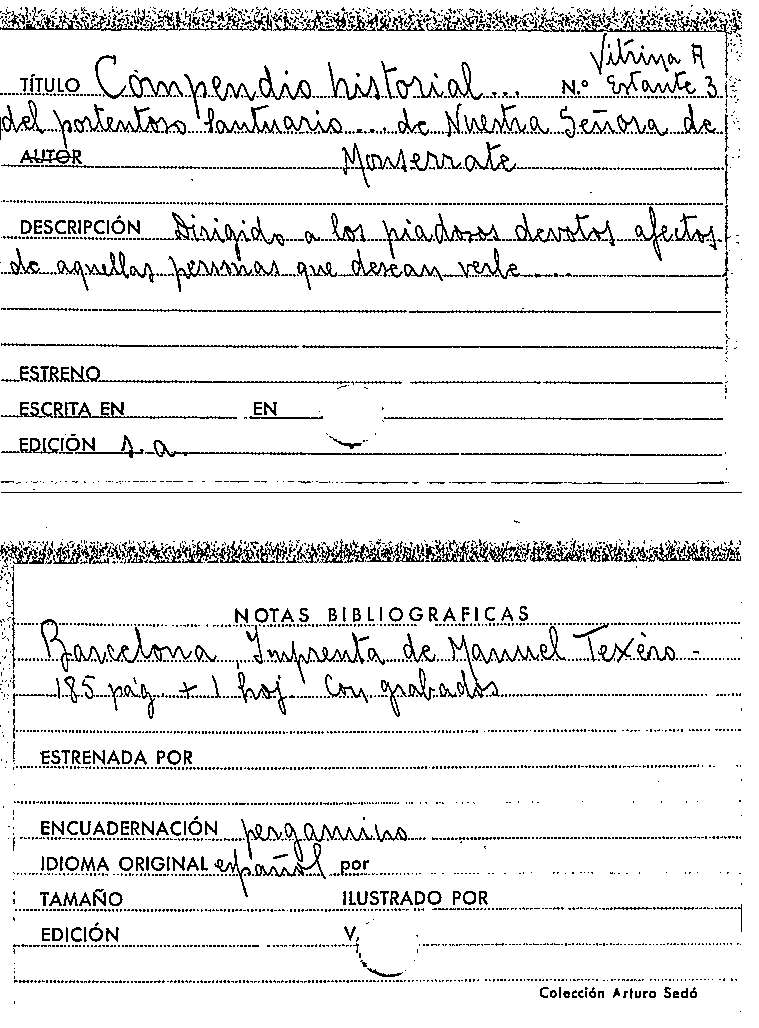 Vitrina A
TÍTULO Compendio historial... N.º Estante 3
del portentoso Santuario... de Nuestra Señora de
AUTOR Monserrate
DESCRIPCIÓN Dirigido a los piadosos devotos afectos
de aquellas personas que desean verle....
ESTRENO
ESCRITA EN EN
EDICIÓN s.a.
NOTAS BIBLIOGRAFICAS
Barcelona, Imprenta de Manuel Texéro -
185 pág. + 1 hoj. Con grabados
ESTRENADA POR
ENCUADERNACIÓN pergamino
IDIOMA ORIGINAL español por
TAMAÑO ILUSTRADO POR
EDICIÓN V.
Colección Arturo Sedó